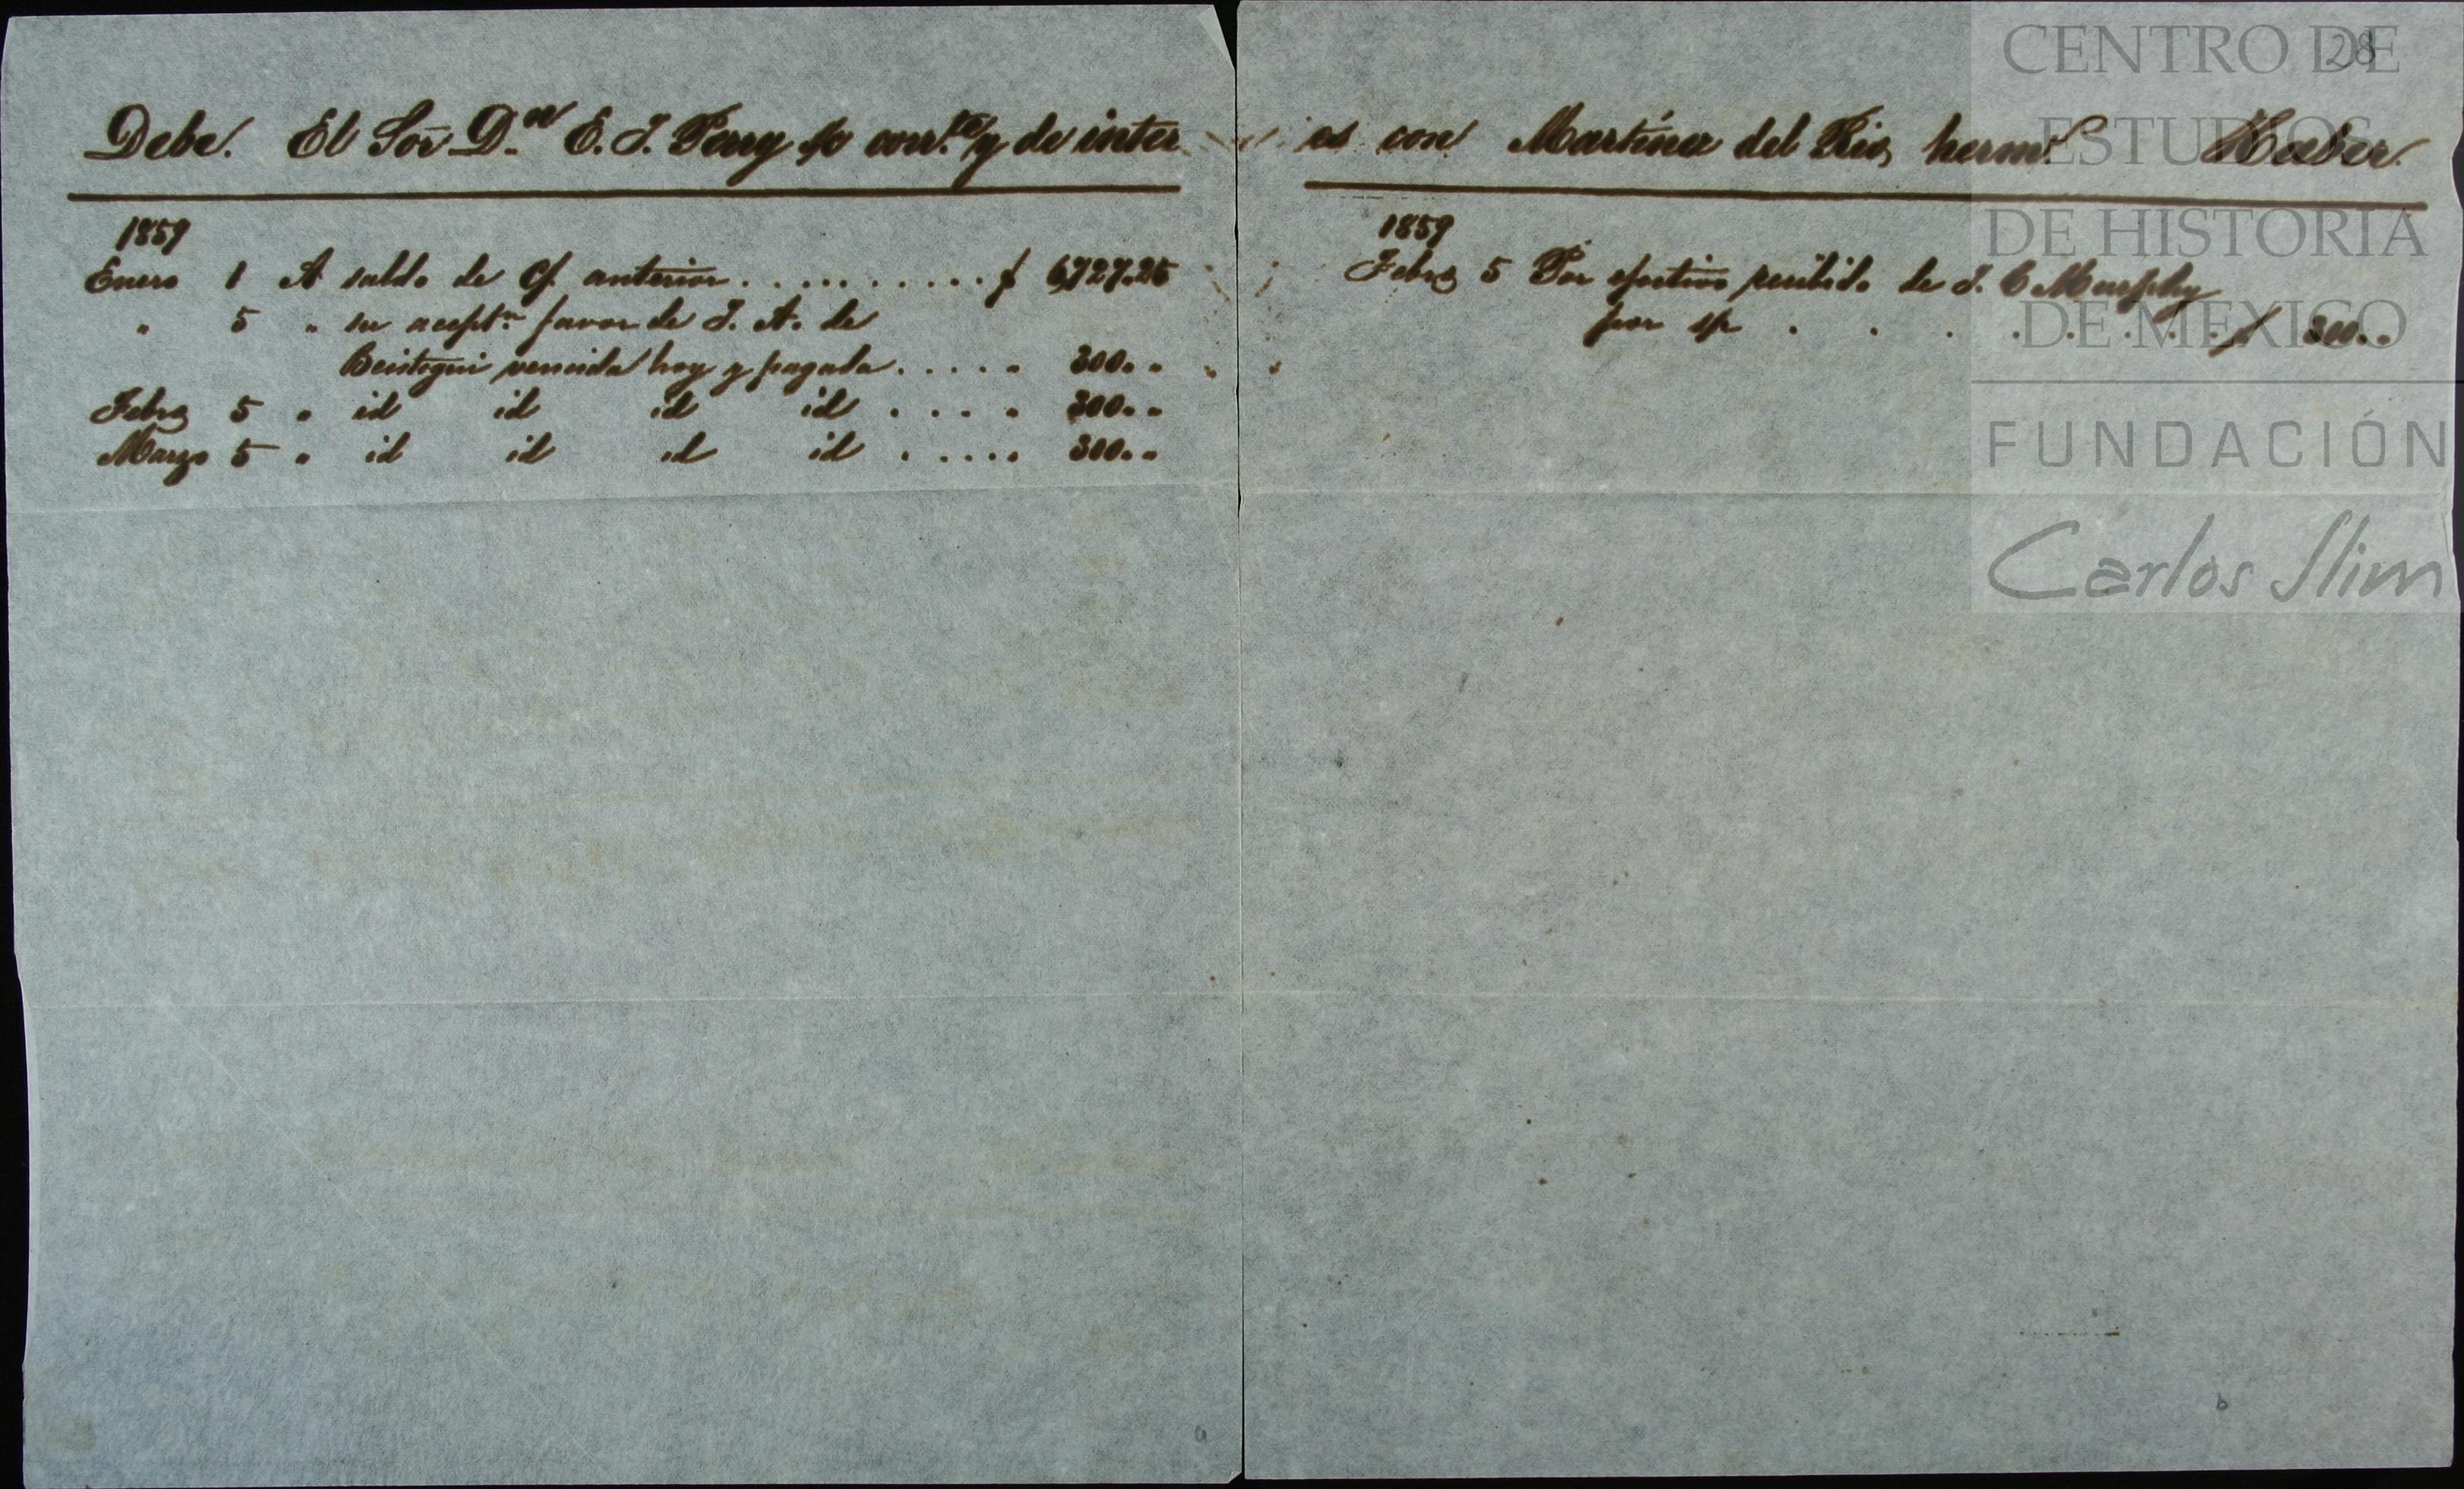 28
Debe. El Sor. Dn. E. J. Perry s/c corrte. y de inter es con Martinez del Rio, herms. Haber.
1859
Enero 1 A saldo de c/. anterior . . . . . . . . . . $ 6,727.25
" 5 " su acepton. favor de J. A. de
Beistegui vencida hoy y pagada . . . . . " 300. "
Febro 5 " id id id id . . . . " 300. "
Marzo 5 " id id id id . . . . . 300. "
1859
Febro 5 Por efectivo recibido de J. C Murphy
por s/c . . . . . . . . . $ 300. .
a
b
CENTRO DE
ESTUDIOS
DE HISTORIA
DE MEXICO
FUNDACIÓN
Carlos Slim